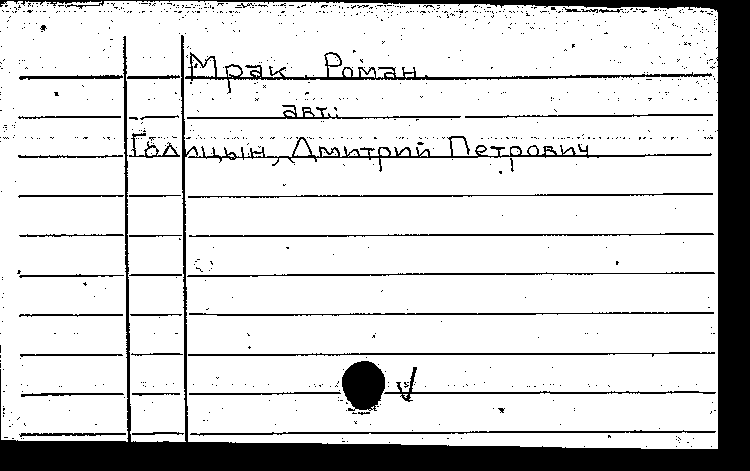 Мрак. Роман.
авт.:
Голицын, Дмитрий Петрович